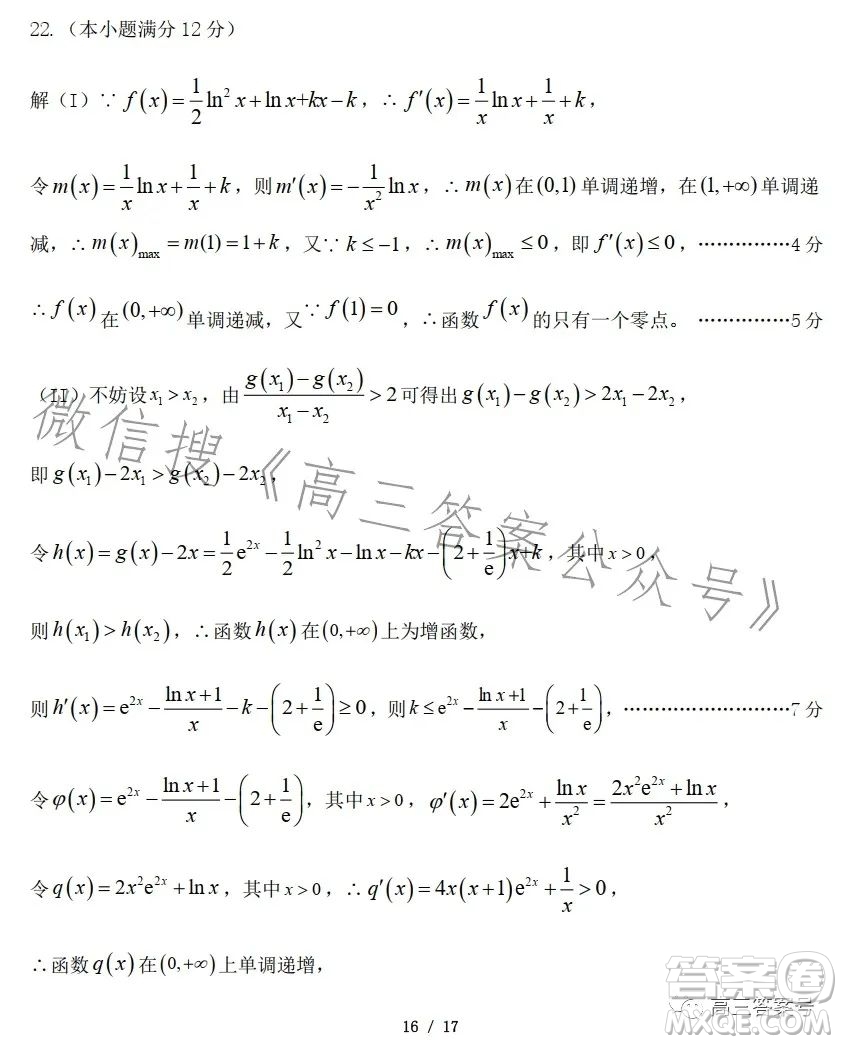 22.（本小题满分12分）
解（I）∵ f(x)=1/2 ln²x+ln x+kx−k，∴ f′(x)=1/x ln x+1/x+k，
令m(x)=1/x ln x+1/x+k，则m′(x)=−1/x² ln x，∴ m(x)在(0,1)单调递增，在(1,+∞)单调递
减，∴ m(x)max=m(1)=1+k，又∵ k≤−1，∴ m(x)max≤0，即f′(x)≤0，……………4分
∴ f(x)在(0,+∞)单调递减，又∵ f(1)=0，∴函数f(x)的只有一个零点。……………5分
（II）不妨设x₁>x₂，由(g(x₁)−g(x₂))/(x₁−x₂)>2可得出g(x₁)−g(x₂)>2x₁−2x₂，
即g(x₁)−2x₁>g(x₂)−2x₂，
令h(x)=g(x)−2x=1/2 e^(2x)−1/2 ln²x−ln x−kx−(2+1/e)x+k，其中x>0，
则h(x₁)>h(x₂)，∴函数h(x)在(0,+∞)上为增函数，
则h′(x)=e^(2x)−(ln x+1)/x−k−(2+1/e)≥0，则k≤e^(2x)−(ln x+1)/x−(2+1/e)，………………………7分
令φ(x)=e^(2x)−(ln x+1)/x−(2+1/e)，其中x>0，φ′(x)=2e^(2x)+ln x/x²=(2x²e^(2x)+ln x)/x²，
令q(x)=2x²e^(2x)+ln x，其中x>0，∴ q′(x)=4x(x+1)e^(2x)+1/x>0，
∴函数q(x)在(0,+∞)上单调递增，
微信搜《高三答案公众号》
答案卷
高三答案号
MXQE.COM
16 / 17